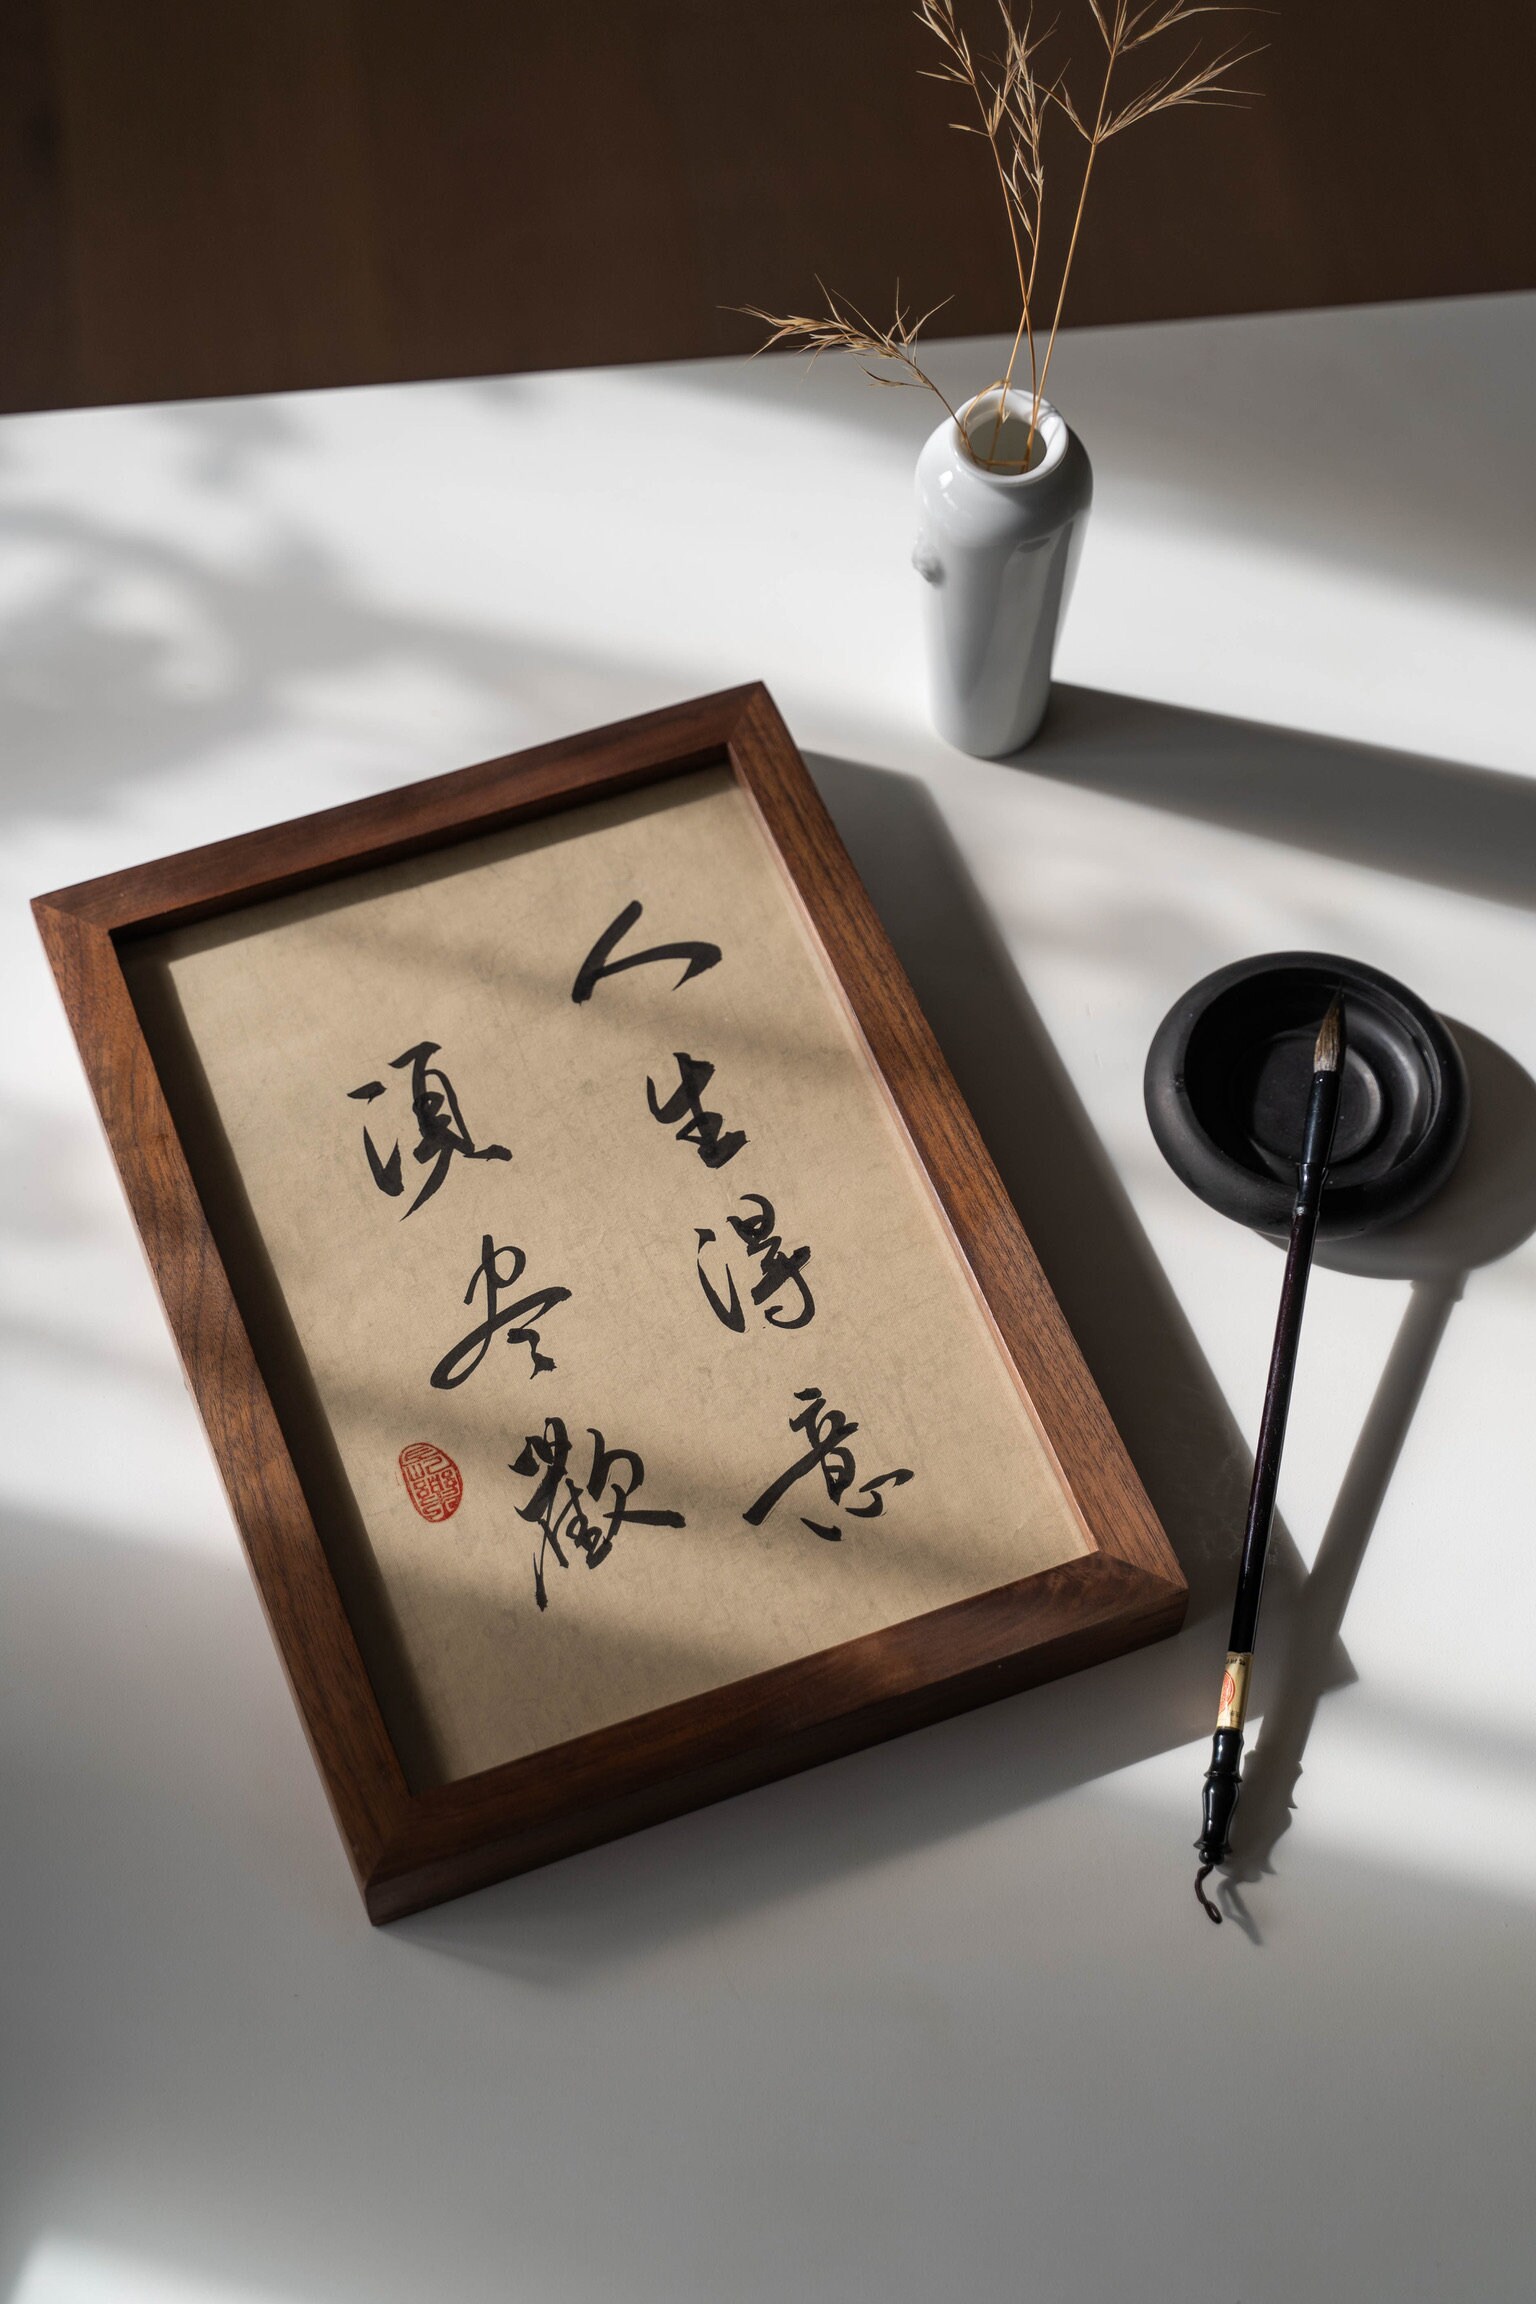 人生得意
須尽歡